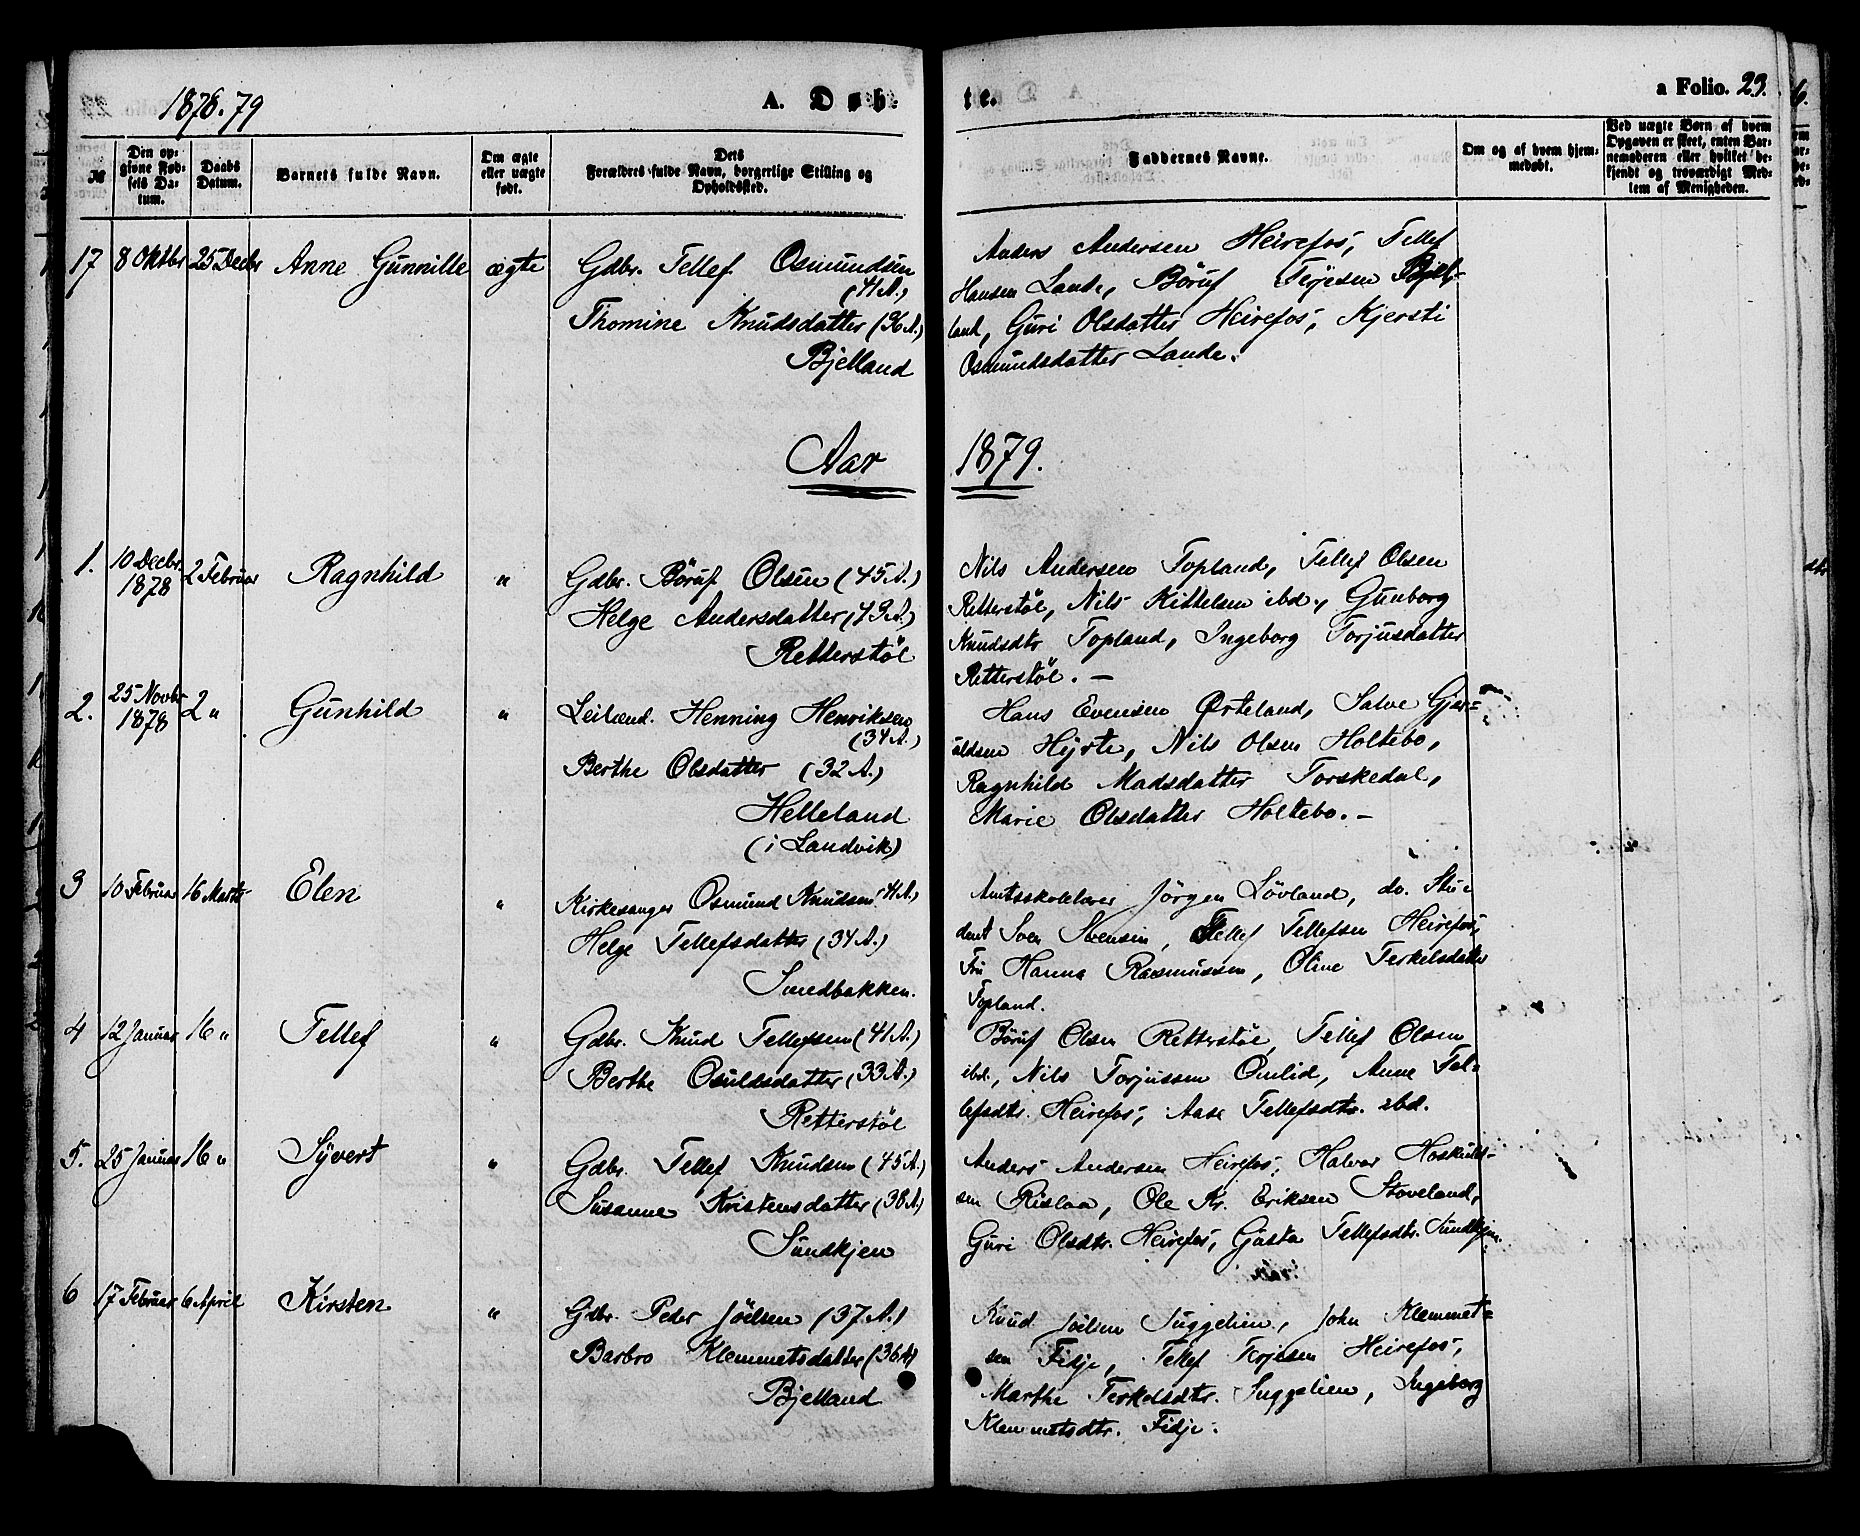 1878.79
A. Døb-
te.
a Folio. 23.
№
Den op-
givne Fød-
sels Da-
tum.
Daabs
Datum.
Barnets fulde Navn.
Om ægte
eller uægte
født.
Dets
Forældres fulde Navn, borgerlige Stilling og
Opholdssted.
Faddernes Navne.
Om og af hvem hjem-
medøbt.
Ved uægte Børn af hvem
Opgaven er skeet, enten Bar-
nemoderen eller hvilket be-
kjendt og troværdigt Med-
lem af Menigheden.
17 8 Oktbr 25 Decbr Anne Gunnille ægte Gdbr. Tellef Osmundsen
(41 A.)
Thomine Knudsdatter (36 A.)
Bjelland
Anders Andersen Heirefos, Tellef
Hansen Lande, Böruf Terjesen Bjel-
land, Guri Olsdatter Heirefos, Kjersti
Osmundsdatter Lande.
Aar 1879.
1. 10 Decbr. 1878 2 Februar Ragnhild " Gdbr. Böruf Olsen (45 A.)
Helge Andersdatter (43 A.)
Retterstöl
Nils Andersen Topland, Tellef Olsen
Retterstöl, Nils Kittelsen ibd., Gunborg
Knudsdtr Topland, Ingeborg Torjusdatter
Retterstöl. —
2. 25 Novbr 1878 2 " Gunhild " Leilænd. Henning Henriksen
(34 A.)
Berthe Olsdatter (32 A.)
Helleland
(i Landvik)
Hans Evensen Örteland, Salve Gjer-
uldsen Hyrte, Nils Olsen Holtebo,
Ragnhild Madsdatter Torskedal,
Marie Olsdatter Holtebo. —
3 10 Februar 16 Marts Elen " Kirkesanger Osmund Knudsen (41 A.)
Helge Tellefsdatter (34 A.)
Smedbakken.
Amtsskolelærer Jörgen Lövland, do. Stu-
dent Sven Svensen, Tellef Tellefsen Heirefos,
Fru Hanna Rasmussen, Oline Terkelsdatter
Topland.
4 12 Januar 16 " Tellef " Gdbr. Knud Tellefsen (41 A.)
Berthe Osuldsdatter (33 A.)
Retterstöl
Böruf Olsen Retterstöl, Tellef Olsen
ibd., Nils Torjussen Omlid, Anne Tel-
lefsdtr. Heirefos, Aase Tellefsdtr. ibd.
5. 25 Januar 16 " Syvert " Gdbr. Tellef Knudsen (45 A.)
Susanne Kristensdatter (38 A.)
Sundkjen
Anders Andersen Heirefos, Halvor Hoskulds-
sen Rislaa, Ole Kr. Eriksen Stoveland,
Guri Olsdtr. Heirefos, Gusta Tellefsdtr. Sundkjen.
6 17 Februar 6 April Kirsten " Gdbr. Peder Jöelsen (37 A.)
Barbro Klemmetsdatter (36 A)
Bjelland
Knud Jöelsen Suggelien, John Klemmet-
sen Fidje, Tellef Terjesen Heirefos,
Marthe Terkelsdtr. Suggelien, Ingeborg
Klemmetsdtr. Fidje.